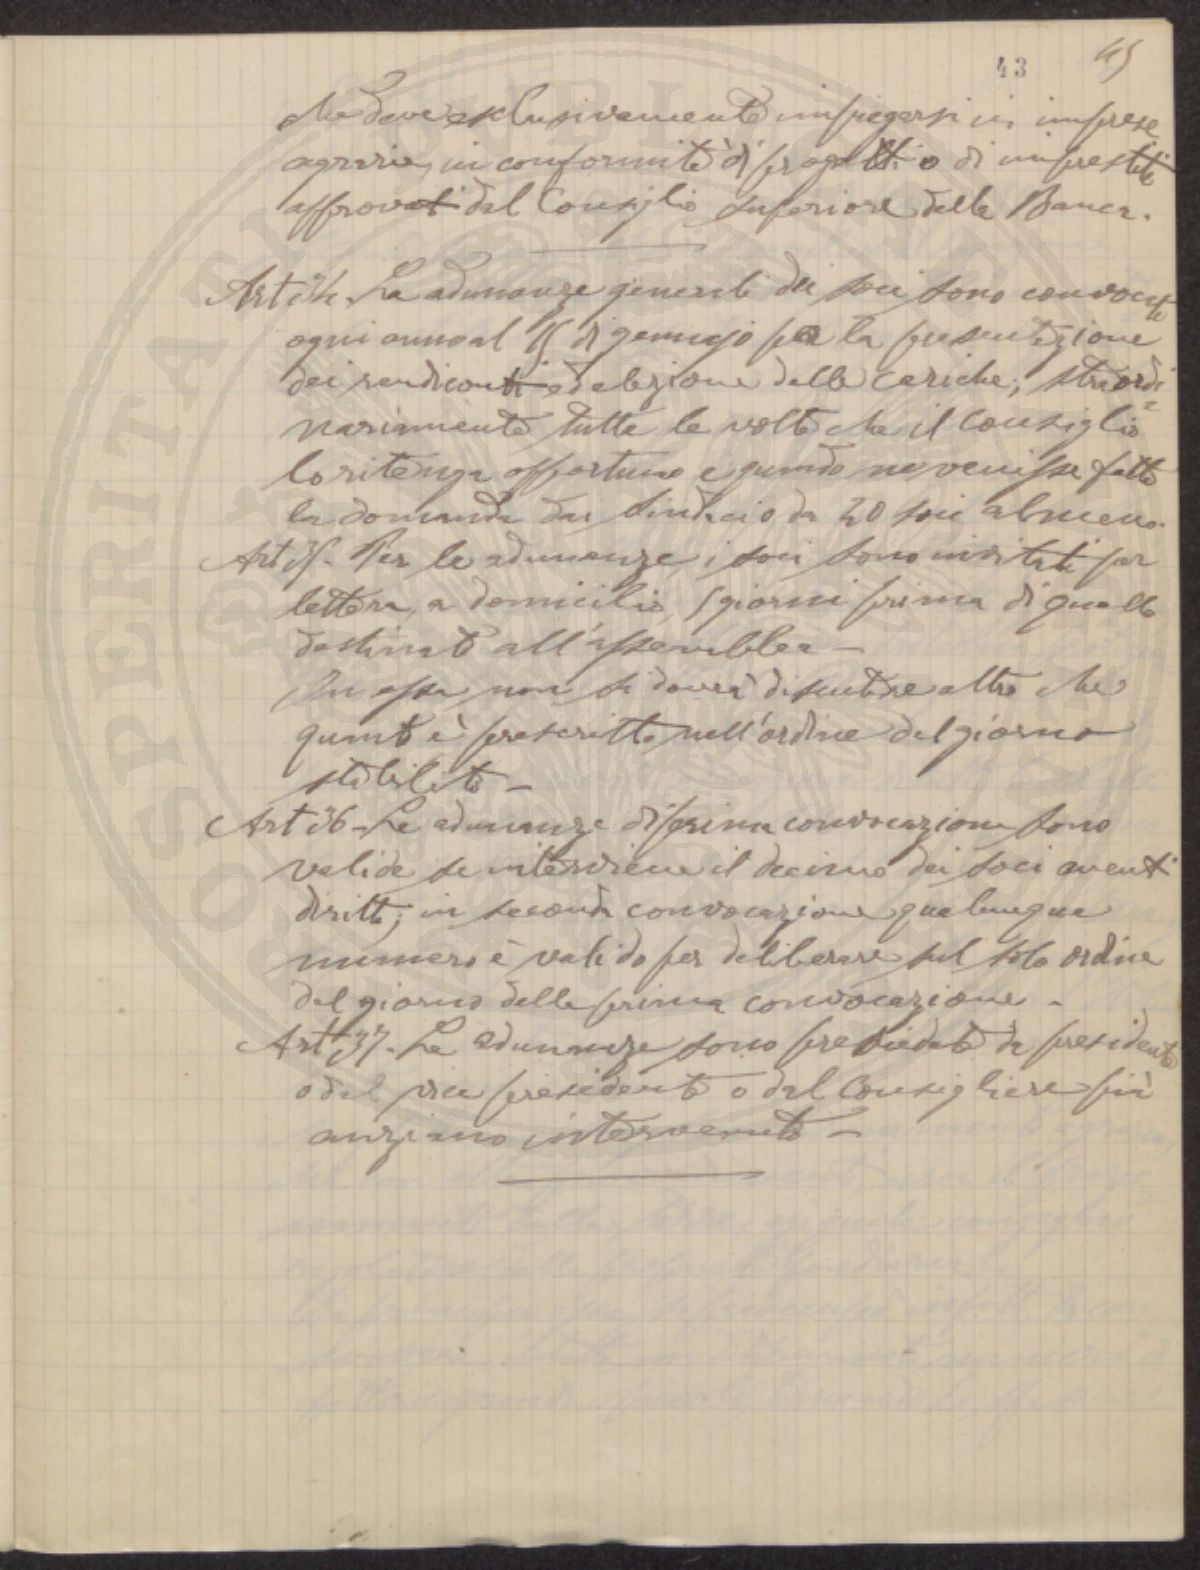 43 45
che deve esclusivamente impiegarsi in imprese
agrarie, in conformità di progetti o di imprestiti
approvati dal Consiglio superiore della Banca.
Art 34. Le adunanze generali dei soci sono convocate
ogni anno al 15 di gennajo per la presentazione
dei rendiconti ed elezione delle cariche; straordi
nariamente tutte le volte che il Consiglio
lo ritenga opportuno e quando ne venisse fatta
la domanda dai sindaci o da 20 soci almeno.
Art 35. Per le adunanze i soci sono invitati per
lettera, a domicilio, 5 giorni prima di quello
destinato all'assemblea —
In essa non si dovrà discutere altro che
quanto è prescritto nell'ordine del giorno
stabilito —
Art 36 - Le adunanze di prima convocazione sono
valide se interviene il decimo dei soci aventi
diritto; in seconda convocazione qualunque
numero è valido per deliberare sul solo ordine
del giorno della prima convocazione -
Art 37. Le adunanze sono presiedute da presidente
o dal vice presidente o dal Consigliere più
anziano intervenuto —
PROSPERITATI PUBLICAE